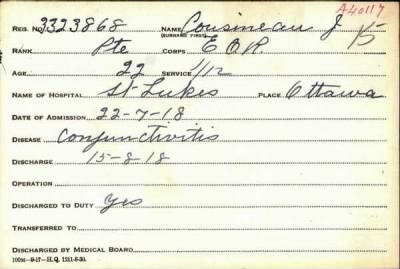 A40117
REG. NO. 3323868 NAME Cousineau J 15
(SURNAME FIRST)
RANK Pte CORPS E O R
AGE 22 SERVICE 1/12
NAME OF HOSPITAL St Lukes PLACE Ottawa
DATE OF ADMISSION 22-7-18
DISEASE Conjunctivitis
DISCHARGE 15-8-18
OPERATION
DISCHARGED TO DUTY Yes
TRANSFERRED TO
DISCHARGED BY MEDICAL BOARD
100M-9-17-H.Q. 1231-8-30.